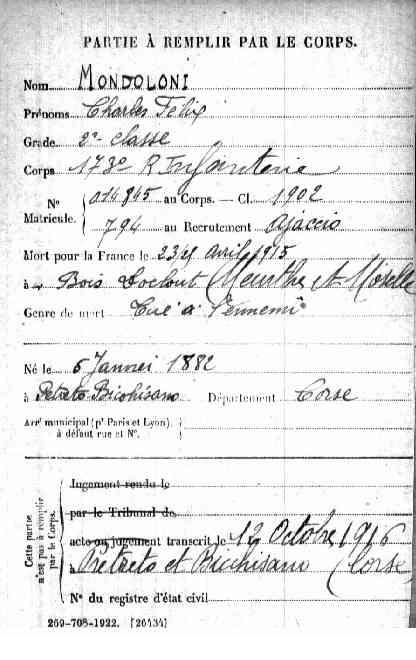 PARTIE À REMPLIR PAR LE CORPS.
Nom MONDOLONI
Prénoms Charles Félix
Grade 2e classe
Corps 173e R Infanterie
N° Matricule. 014845 au Corps. — Cl. 1902
794 au Recrutement Ajaccio
Mort pour la France le avril 1915
à Bois Meurthe et Moselle
Genre de mort Tué à l'ennemi
Né le 5 Janvier 1882
à Petreto Bicchisano Département Corse
Arrt municipal (pr Paris et Lyon),
à défaut rue et N°.
Cette partie
n'est pas à remplir
par le Corps.
Jugement rendu le
par le Tribunal de
acte ou jugement transcrit le 12 Octobre 1916
à Petreto et Bicchisano Corse
N° du registre d'état civil
269-708-1922. [26434]